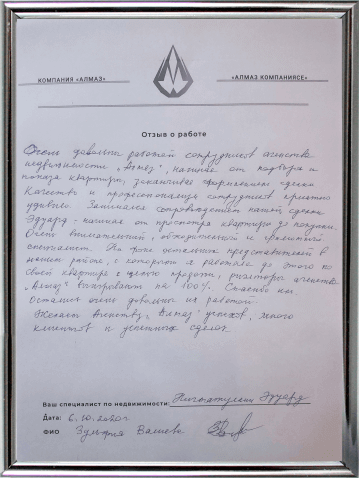 КОМПАНИЯ «АЛМАЗ»
«АЛМАЗ КОМПАНИЯСЕ»
Отзыв о работе
Очень довольны работой сотрудников агентства
недвижимости "Алмаз", начиная от подбора и
показа квартиры, заканчивая оформлением сделки
Качество и профессионализм сотрудников приятно
удивило. Занимался сопровождением нашей сделки
Эдуард - начиная от просмотра квартиры до покупки.
Очень внимательный, обходительный и грамотный
специалист. На фоне остальных представителей в
нашем районе, с которыми я работал до этого по
своей квартире с целью продажи, риэлторы агентства
"Алмаз" выигрывают на 100%. Спасибо вам
Остались очень довольны их работой.
Желаем Агентству "Алмаз" успехов, много
клиентов и успешных сделок.
Ваш специалист по недвижимости: Эдуард
Дата: 6.10.2020г
ФИО Зульфия Валиева